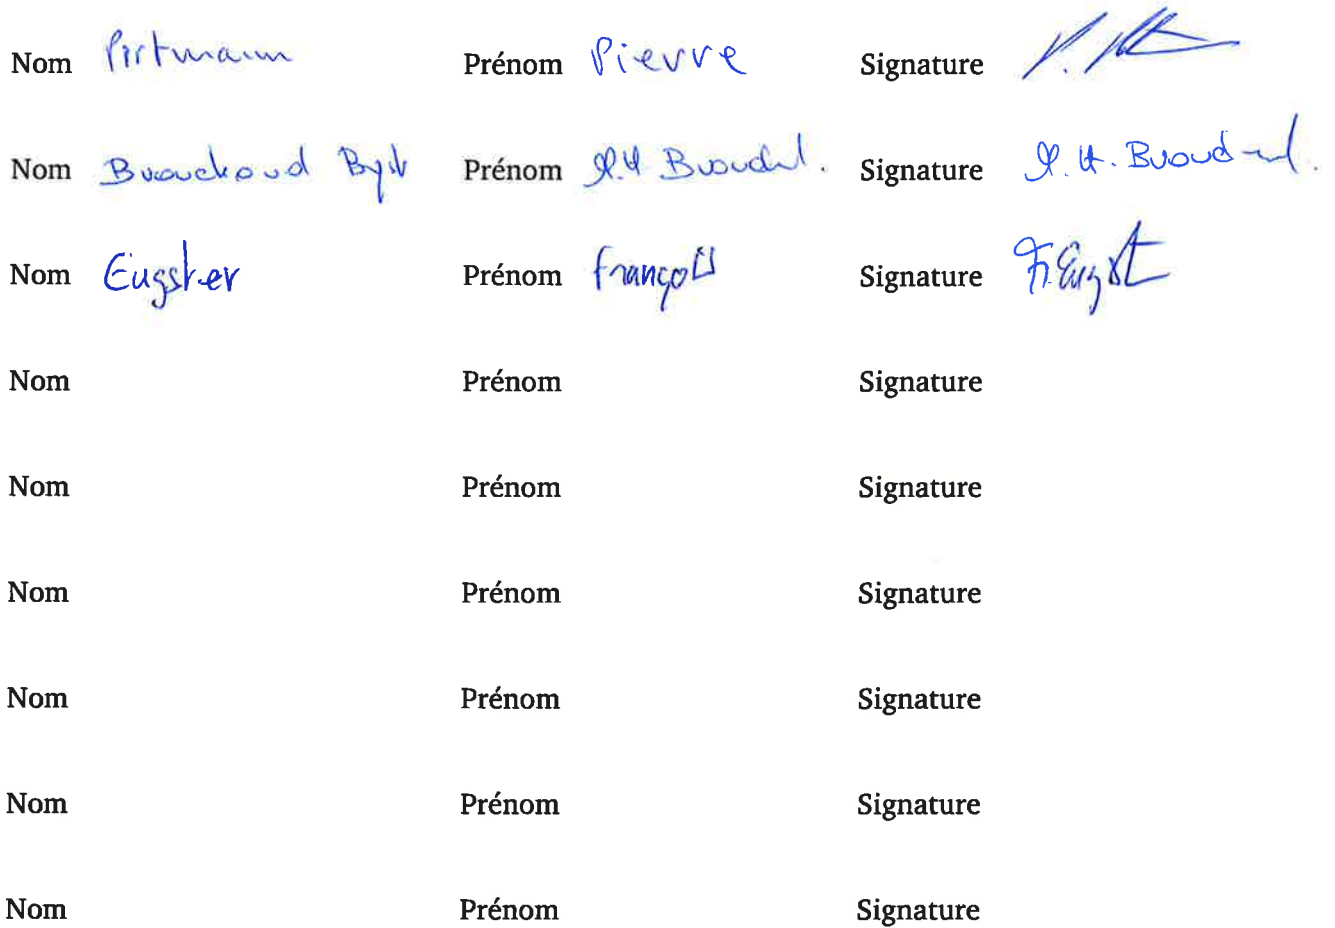 Nom Pirtmann Prénom Pierre Signature
Nom Prénom Signature
Nom Eugster Prénom François Signature F. Eugst
Nom Prénom Signature
Nom Prénom Signature
Nom Prénom Signature
Nom Prénom Signature
Nom Prénom Signature
Nom Prénom Signature